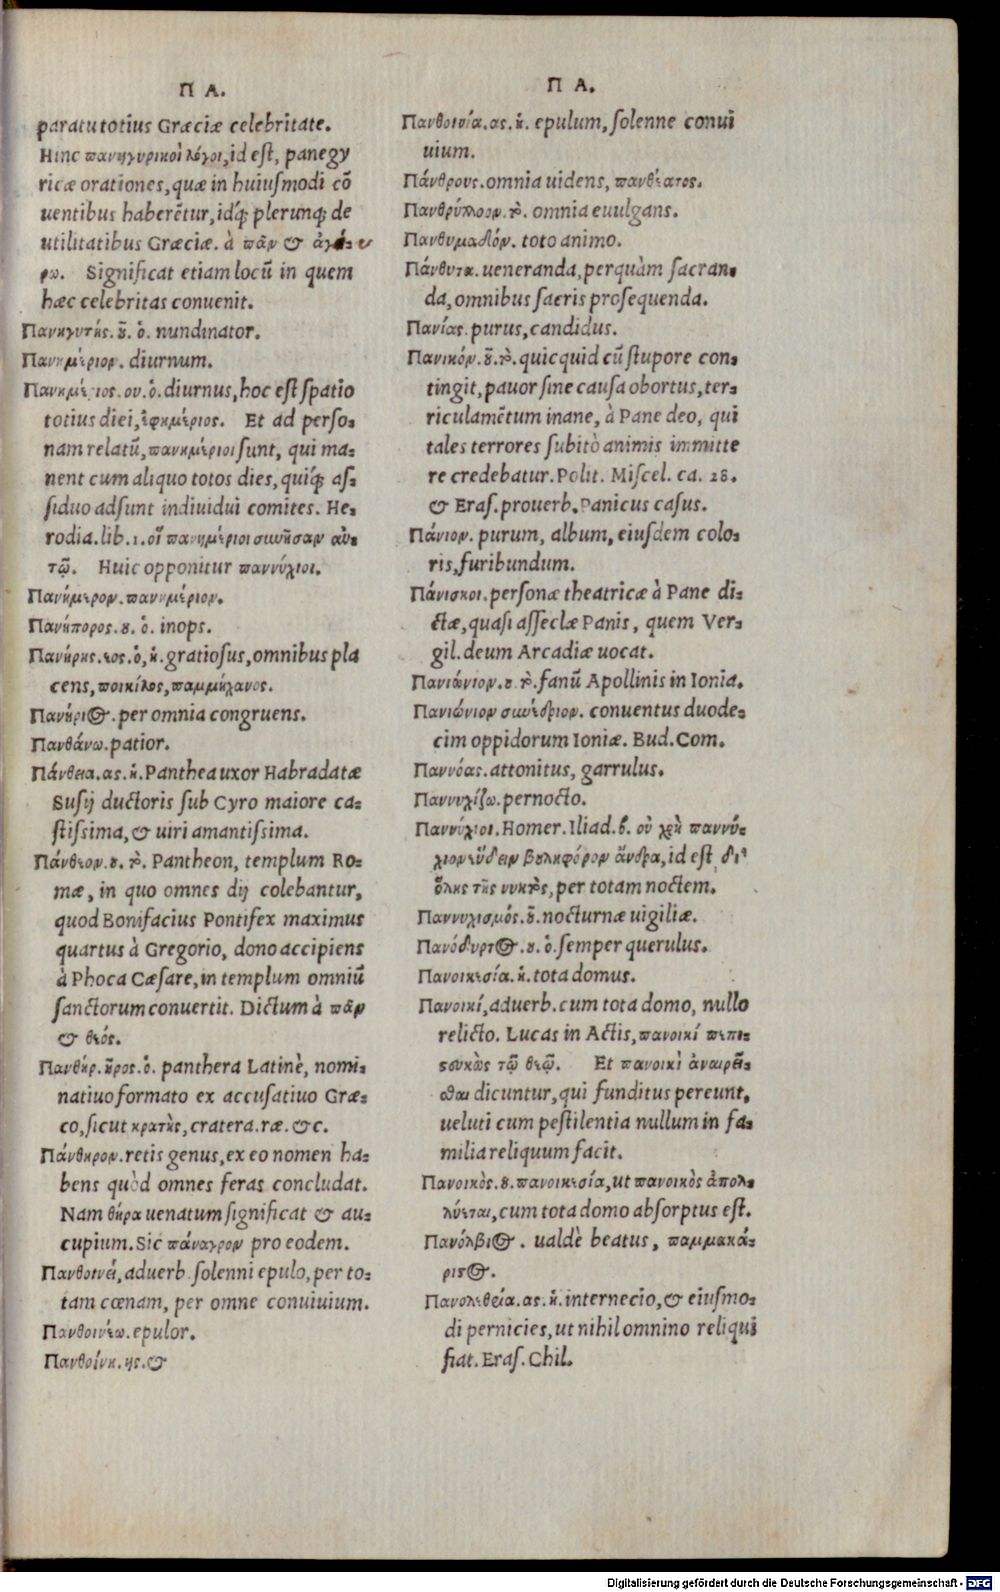 Π Α.
paratu totius Græciæ celebritate.
Hinc πανηγυρικοὶ λόγοι, id eſt, panegy
ricæ orationes, quæ in huiuſmodi cō
uentibus haberētur, idq́; plerunq; de
utilitatibus Græciæ. à πᾶν &
ρω. Significat etiam locū in quem
hæc celebritas conuenit.
Πανηγυτής. οῦ. ὁ. nundinator.
Πανημέριον. diurnum.
Πανημέριος. ου. ὁ. diurnus, hoc eſt ſpatio
totius diei, ἐφημέριος. Et ad perſo=
nam relatū, πανημέριοι ſunt, qui ma=
nent cum aliquo totos dies, quiq́; aſ=
ſiduo adſunt indiuidui comites. He=
rodia. lib. 1. οἵ πανημέριοι συνῆσαν αὐ=
τῷ. Huic opponitur παννύχιοι.
Πανήμερον. πανημέριον.
Πανήπορος. ου. ὁ. inops.
Πανήρης. εος. ὁ, ἡ. gratioſus, omnibus pla
cens, ποικίλος, παμμήχανος.
Πανήριος. per omnia congruens.
Πανθάνω. patior.
Πάνθεια. ας. ἡ. Panthea uxor Habradatæ
Suſij ductoris ſub Cyro maiore ca=
ſtiſsima, & uiri amantiſsima.
Πάνθεον. ου. τὸ. Pantheon, templum Ro=
mæ, in quo omnes dij colebantur,
quod Bonifacius Pontifex maximus
quartus à Gregorio, dono accipiens
à Phoca Cæſare, in templum omniū
ſanctorum conuertit. Dictum à πᾶν
& θεός.
Πανθήρ. ῆρος. ὁ. panthera Latinè, nomi=
natiuo formato ex accuſatiuo Græ=
co, ſicut κρατὴς, cratera. ræ. &c.
Πάνθηρον. retis genus, ex eo nomen ha=
bens quòd omnes feras concludat.
Nam θήρα uenatum ſignificat & au=
cupium. Sic πάναγρον pro eodem.
Πανθοινεὶ, aduerb. ſolenni epulo, per to=
tam cœnam, per omne conuiuium.
Πανθοινέω. epulor.
Πανθοίνη. ης. &
Π Α.
Πανθοινία. ας. ἡ. epulum, ſolenne conui
uium.
Πάνθρους. omnia uidens, πανθέατος.
Πανθρύλλουν. τὸ. omnia euulgans.
Πανθυμαδόν. toto animo.
Πάνθυτα. ueneranda, perquàm ſacran=
da, omnibus ſacris proſequenda.
Πανίας. purus, candidus.
Πανικόν. οῦ. τὸ. quicquid cū ſtupore con=
tingit, pauor ſine cauſa obortus, ter=
riculamētum inane, à Pane deo, qui
tales terrores ſubitò animis immitte
re credebatur. Polit. Miſcel. ca. 28.
& Eraſ. prouerb. Panicus caſus.
Πάνιον. purum, album, eiuſdem colo=
ris, furibundum.
Πάνισκοι. perſonæ theatricæ à Pane di=
ctæ, quaſi aſſeclæ Panis, quem Ver=
gil. deum Arcadiæ uocat.
Πανιώνιον. ου τὸ. fanū Apollinis in Ionia.
Πανιώνιον συνέδριον. conuentus duode=
cim oppidorum Ioniæ. Bud. Com.
Παννόας. attonitus, garrulus.
Παννυχίζω. pernocto.
Παννύχιοι. Homer. Iliad. β. οὐ χρὴ παννύ=
χιον εὕδειν βουληφόρον ἄνδρα, id eſt δι'
ὅλης τῆς νυκτὸς, per totam noctem.
Παννυχισμός. οῦ. nocturnæ uigiliæ.
Πανόδυρτος. ου. ὁ. ſemper querulus.
Πανοικεσία. ἡ. tota domus.
Πανοικί, aduerb. cum tota domo, nullo
relicto. Lucas in Actis, πανοικί πεπι=
στευκὼς τῷ θεῷ. Et πανοικὶ ἀναιρεῖ=
σθαι dicuntur, qui funditus pereunt,
ueluti cum peſtilentia nullum in fa=
milia reliquum facit.
Πανοικὸς. ου. πανοικεσία, ut πανοικὸς ἀπολ=
λύεται, cum tota domo abſorptus eſt.
Πανόλβιος. ualdè beatus, παμμακά=
ριστος.
Πανολεθρία. ας. ἡ. internecio, & eiuſmo=
di pernicies, ut nihil omnino reliqui
fiat. Eraſ. Chil.
Digitalisierung gefördert durch die Deutsche Forschungsgemeinschaft - DFG